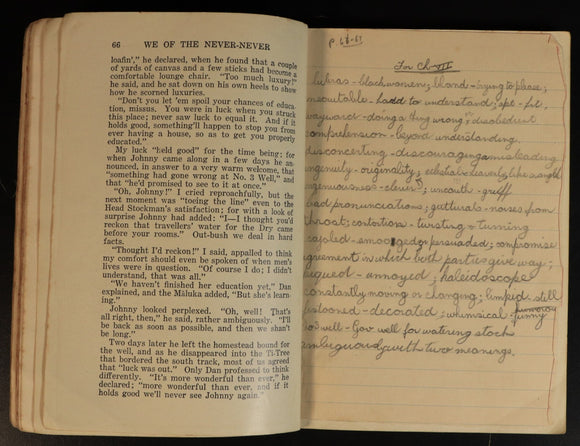 66 WE OF THE NEVER-NEVER
loafin'," he declared, when he found that a couple
of yards of canvas and a few sticks had become a
comfortable lounge chair. "Too much luxury!"
he said, and he sat down on his own heels to show
how he scorned luxuries.
"Don't you let 'em spoil your chances of educa-
tion, missus. You were in luck when you struck
this place; never saw luck to equal it. And if it
holds good, something'll happen to stop you from
ever having a house, so as to get you properly
educated."
My luck "held good" for the time being; for
when Johnny came along in a few days he an-
nounced, in answer to a very warm welcome, that
"something had gone wrong at No. 3 Well," and
that "he'd promised to see to it at once."
"Oh, Johnny!" I cried reproachfully, but the
next moment was "toeing the line" even to the
Head Stockman's satisfaction; for with a look of
surprise Johnny had added: "I—I thought you'd
reckon that travellers' water for the Dry came
before your rooms." Out-bush we deal in hard
facts.
"Thought I'd reckon!" I said, appalled to think
my comfort should even be spoken of when men's
lives were in question. "Of course I do; I didn't
understand, that was all."
"We haven't finished her education yet," Dan
explained, and the Máluka added, "But she's learn-
ing."
Johnny looked perplexed. "Oh, well! That's
all right, then," he said, rather ambiguously. "I'll
be back as soon as possible, and then we shan't
be long."
Two days later he left the homestead bound for
the well, and as he disappeared into the Ti-Tree
that bordered the south track, most of us agreed
that "luck was out." Only Dan professed to think
differently. "It's more wonderful than ever," he
declared; "more wonderful than ever, and if it
holds good we'll never see Johnny again."
For Ch VII
lubras - blackwomen; bland - trying to please;
hard to understand; apt - fit,
wayward - doing a thing wrong or disobedient
comprehension - beyond understanding.
disconcerting - discouraging misleading
ingenuity - originality; celestial - heavenly like an angel
ingenuousness - clever; uncouth - gruff
bad pronunciations; gutturals - noises from
throat; contortions - twisting & turning
cajoled - smooged or persuaded; compromise
agreement in which both parties give way;
piqued - annoyed; kaleidoscope
constantly moving or changing; limpid still
festooned - decorated; whimsical - humorous
funny
well - Gov well for watering stock
ambiguously with two meanings.